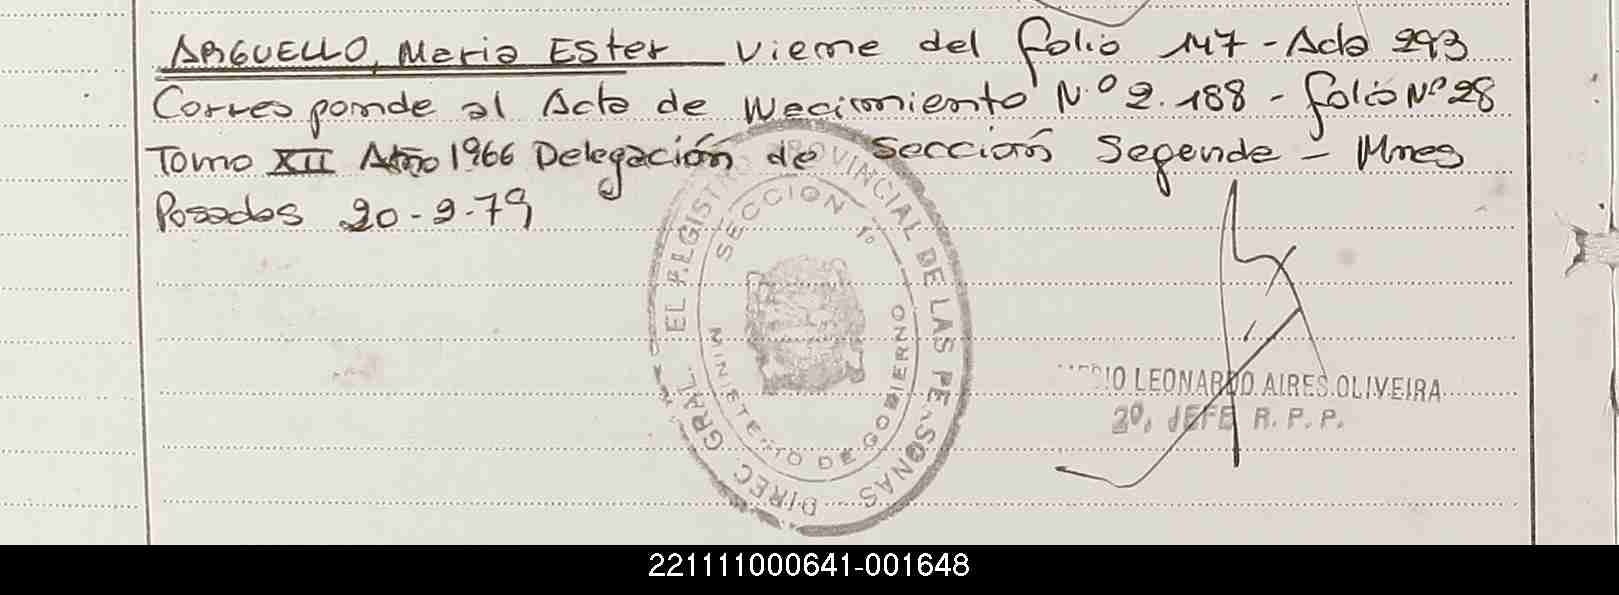 ARGUELLO, Maria Ester Viene del folio 147 - Acta 293
Corresponde al Acta de Nacimiento N.º 2.188 - folio Nº 28
Tomo XII Año 1966 Delegación de Sección Segunda - Mnes
Posadas 20-2-79
DIREC. GRAL. DEL REGISTRO PROVINCIAL DE LAS PERSONAS
SECCION 1º
MINISTERIO DE GOBIERNO
LEONARDO AIRES OLIVEIRA
2º. JEFE R. P. P.
221111000641-001648